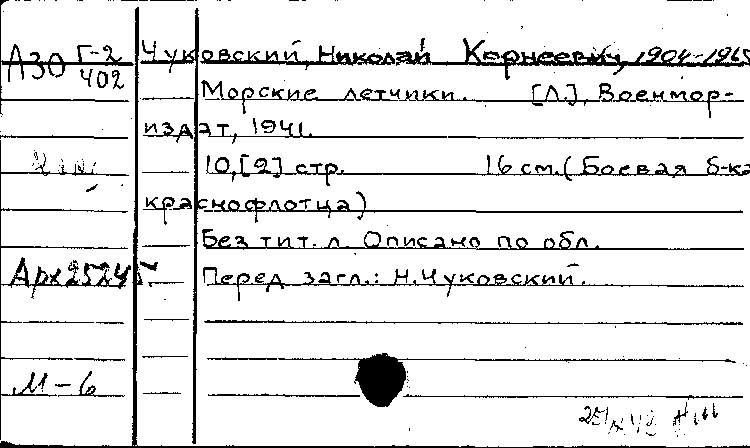 АЗО Г-2/402 Чуковский, Николай Корнеевич, 1904-1965
Морские летчики. [Л.], Военмор-
издат, 1941.
10,[2] стр. 16 см. (Боевая б-ка
краснофлотца)
Без тит. л. Описано по обл.
Арх25245. Перед загл.: Н. Чуковский.
М-6